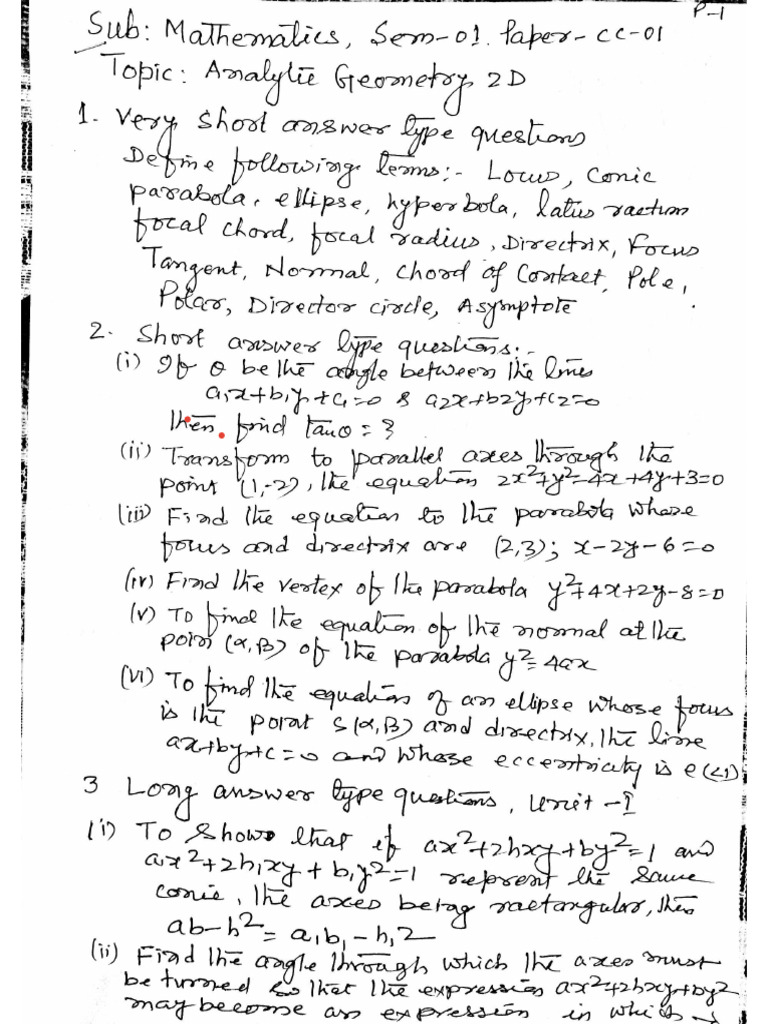 P-1
Sub: Mathematics, Sem-01. Paper-CC-01
Topic: Analytic Geometry 2D
1. Very short answer type questions
Define following terms:- Locus, conic
parabola, ellipse, hyperbola, latus ractum
focal chord, focal radius, Directrix, Focus
Tangent, Normal, chord of contact, Pole,
Polar, Director circle, Asymptote
2. Short answer type questions:-
(i) If θ be the angle between the lines
a₁x+b₁y+c₁=0 & a2x+b2y+c2=0
then find tanθ = ?
(ii) Transform to parallel axes through the
point (1,-2), the equation 2x²+y²-4x+4y+3=0
(iii) Find the equation to the parabola whose
focus and directrix are (2,3); x-2y-6=0
(iv) Find the vertex of the parabola y²+4x+2y-8=0
(v) To find the equation of the normal at the
point (α,β) of the parabola y²=4ax
(vi) To find the equation of an ellipse whose focus
is the point S(α,β) and directrix, the line
ax+by+c=0 and whose eccentricity is e(<1)
3 Long answer type questions, Unit-I
(i) To show that if ax²+2hxy+by²=1 and
a₁x²+2h₁xy+b₁y²=1 represent the same
conic, the axes being ractangular, then
ab-h²=a₁b₁-h₁2
(ii) Find the angle through which the axes must
be turned so that the expression ax²+2hxy+by²
may become an expression in which